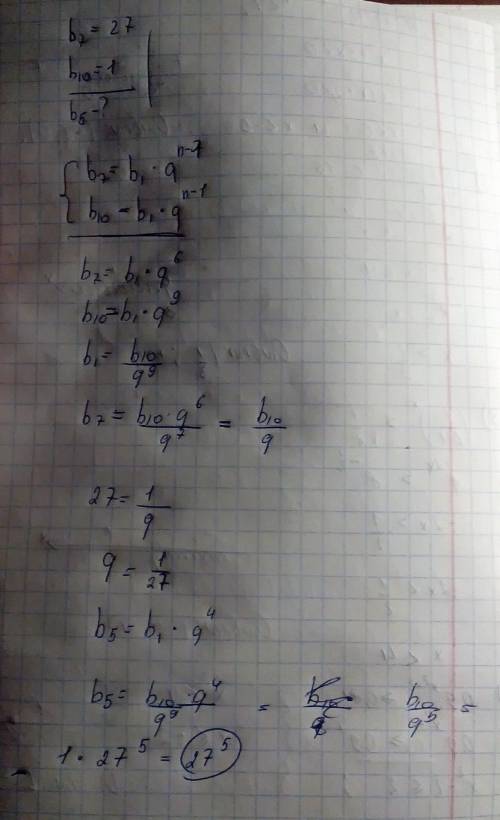 b₇ = 27
b₁₀ = 1
b₅ - ?
b₇ = b₁ · q^(n-1)
b₁₀ = b₁ · q^(n-1)
b₇ = b₁ · q⁶
b₁₀ = b₁ · q⁹
b₁ = b₁₀/q⁹
b₇ = b₁₀ · q⁶/q⁷ = b₁₀/q
27 = 1/q
q = 1/27
b₅ = b₁ · q⁴
b₅ = b₁₀ · q⁴/q⁹ = b₁₀/q⁵ =
1 · 27⁵ = 27⁵